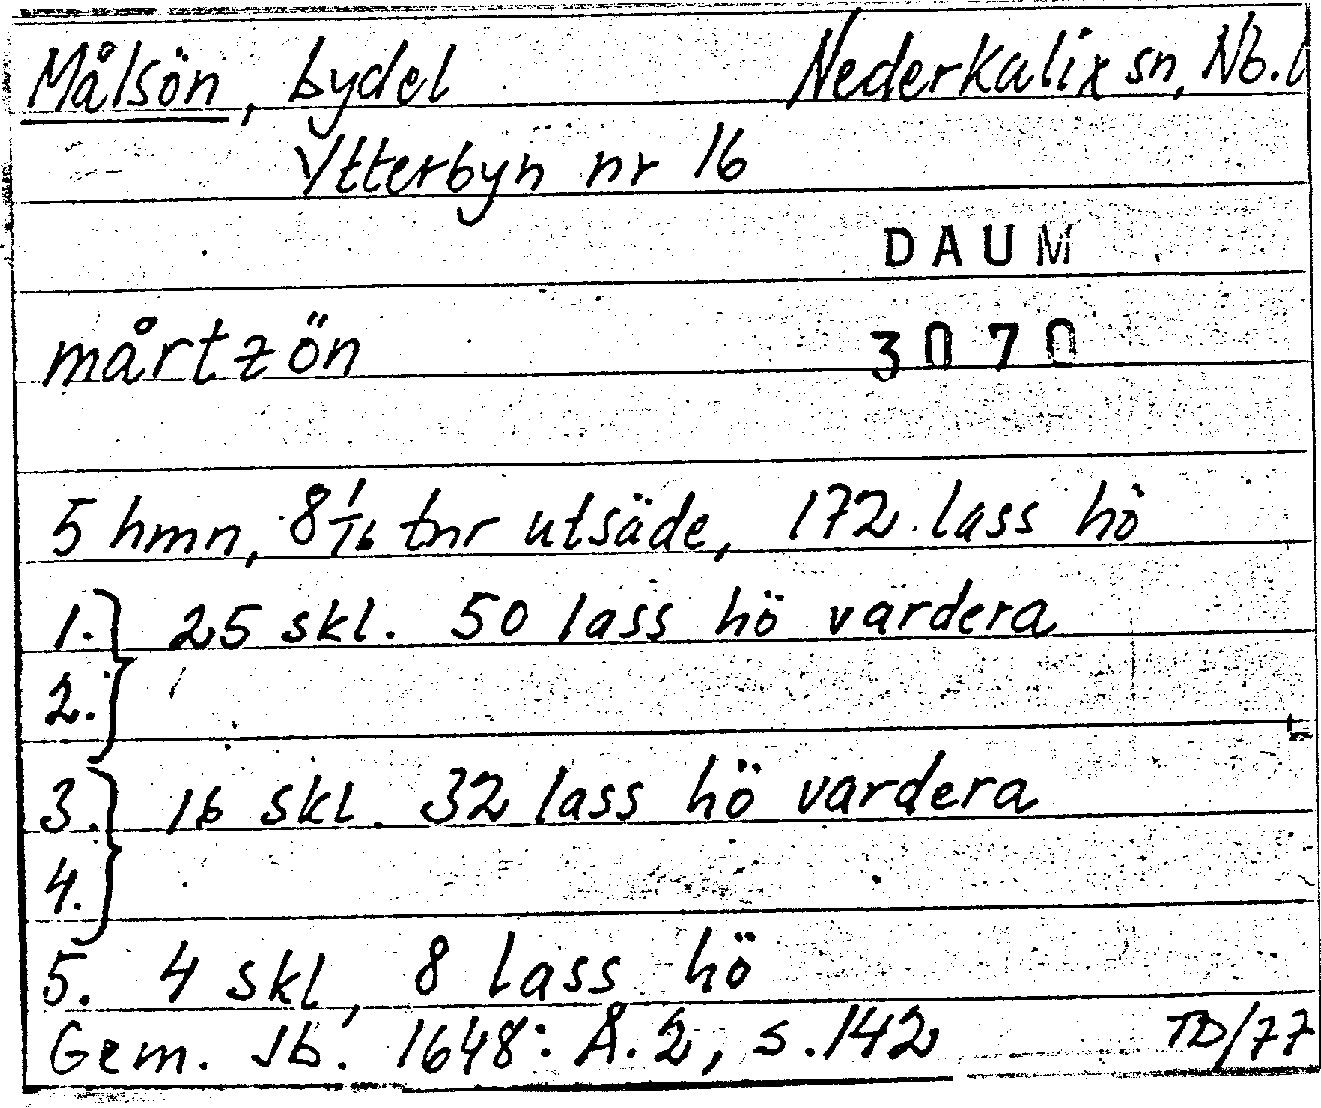 Målsön, bydel Nederkalix sn, Nb.l
Ytterbyn nr 16
DAUM
mårtzön 3070
5 hmn, 8 1/16 tnr utsäde, 172 lass hö
1.} 25 skl. 50 lass hö vardera
2.}
3.} 16 skl. 32 lass hö vardera
4.}
5. 4 skl, 8 lass hö
Gem. Jb. 1648: A.2, s.142 TD/77